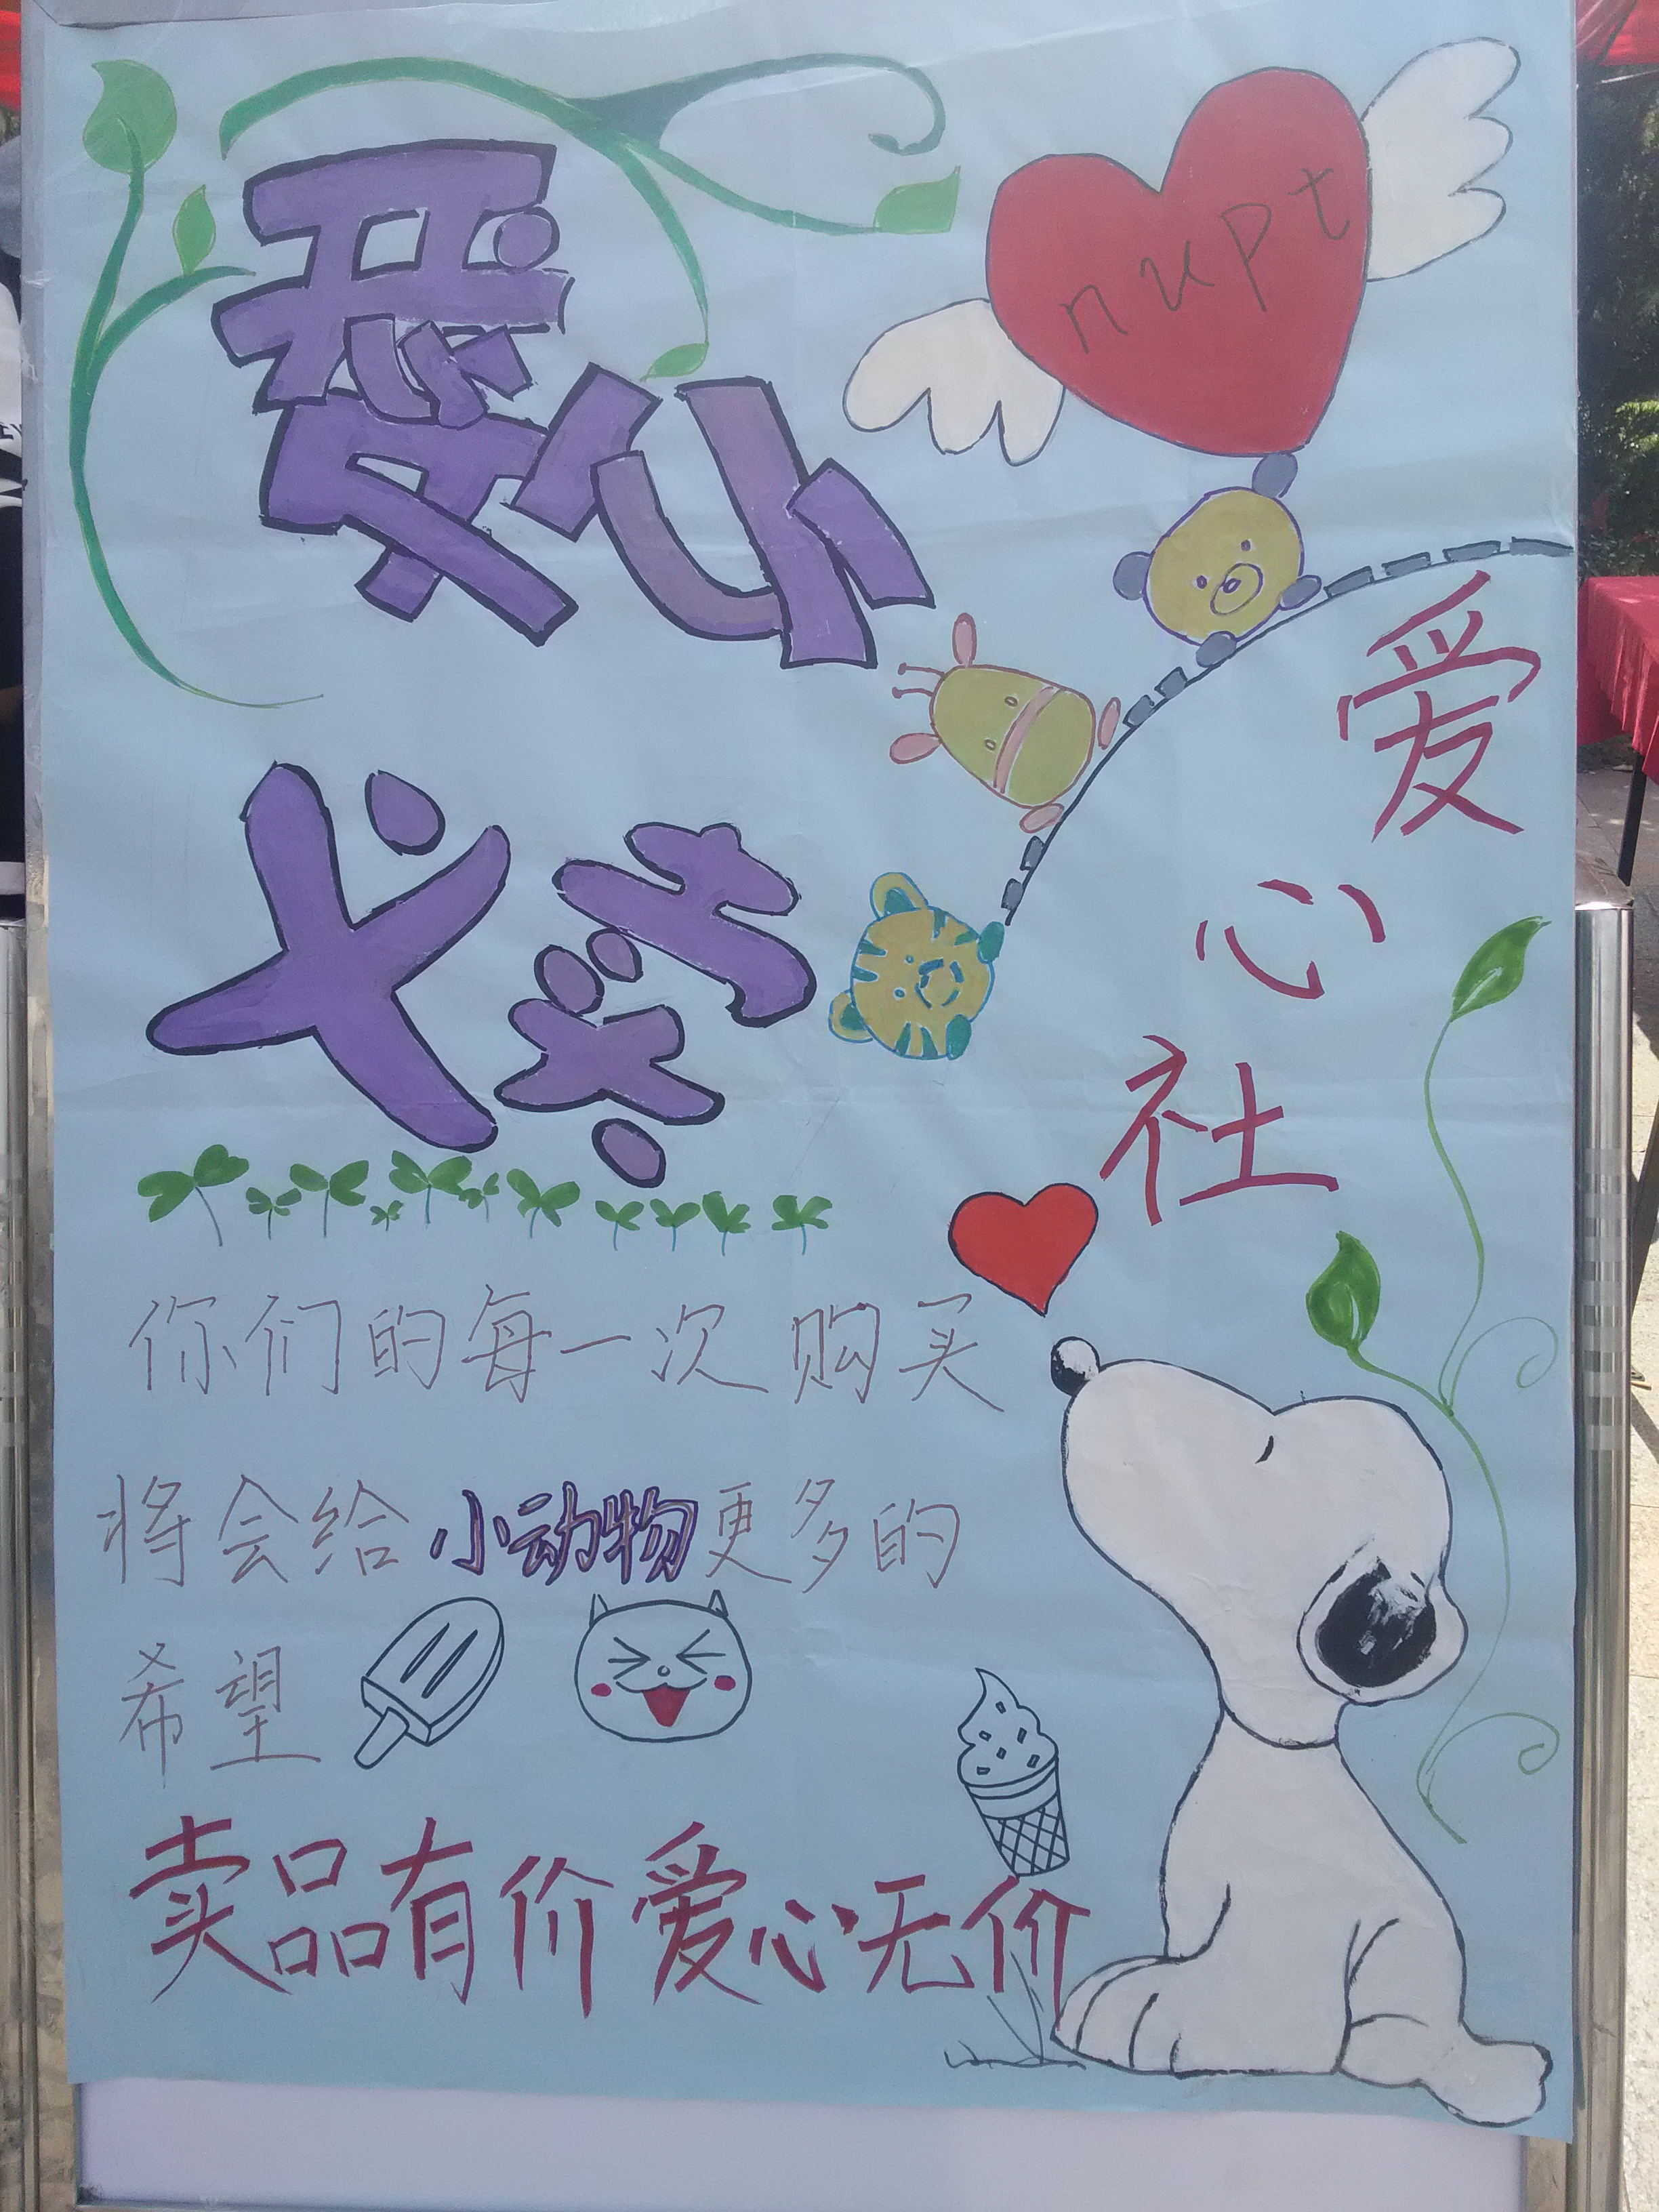 爱心
nupt
义卖
爱心社
你们的每一次购买
将会给小动物更多的
希望
卖品有价爱心无价